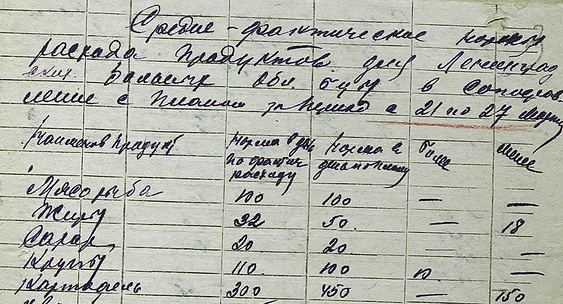 Средне-фактическое нормы
расхода продуктов для Ленинград
больниц в сопостав
ление с планом за период с 21 по 27 марта
Наименов продукт Норма в день по фактич расходу Норма в день по плану более менее
Мясо рыба 100 100 — —
Жиры 32 50 — 18
Сахар 20 20 — —
Крупы 110 100 10 —
Картофель 300 450 — 150